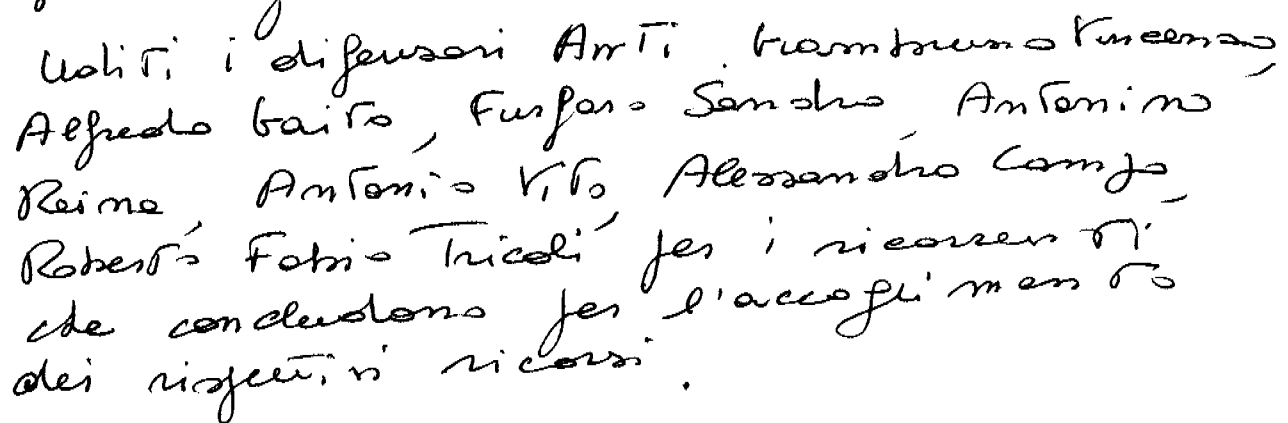 Uditi i difensori Avv.Ti Gramtruno Vincenzo,
Alfredo Gaito, Furfaro Sandro, Antonino
Reina, Antonio Vito, Alessandro Campo,
Roberto Fabio Tricoli per i ricorrenti
che concludono per l'accoglimento
dei rispettivi ricorsi.